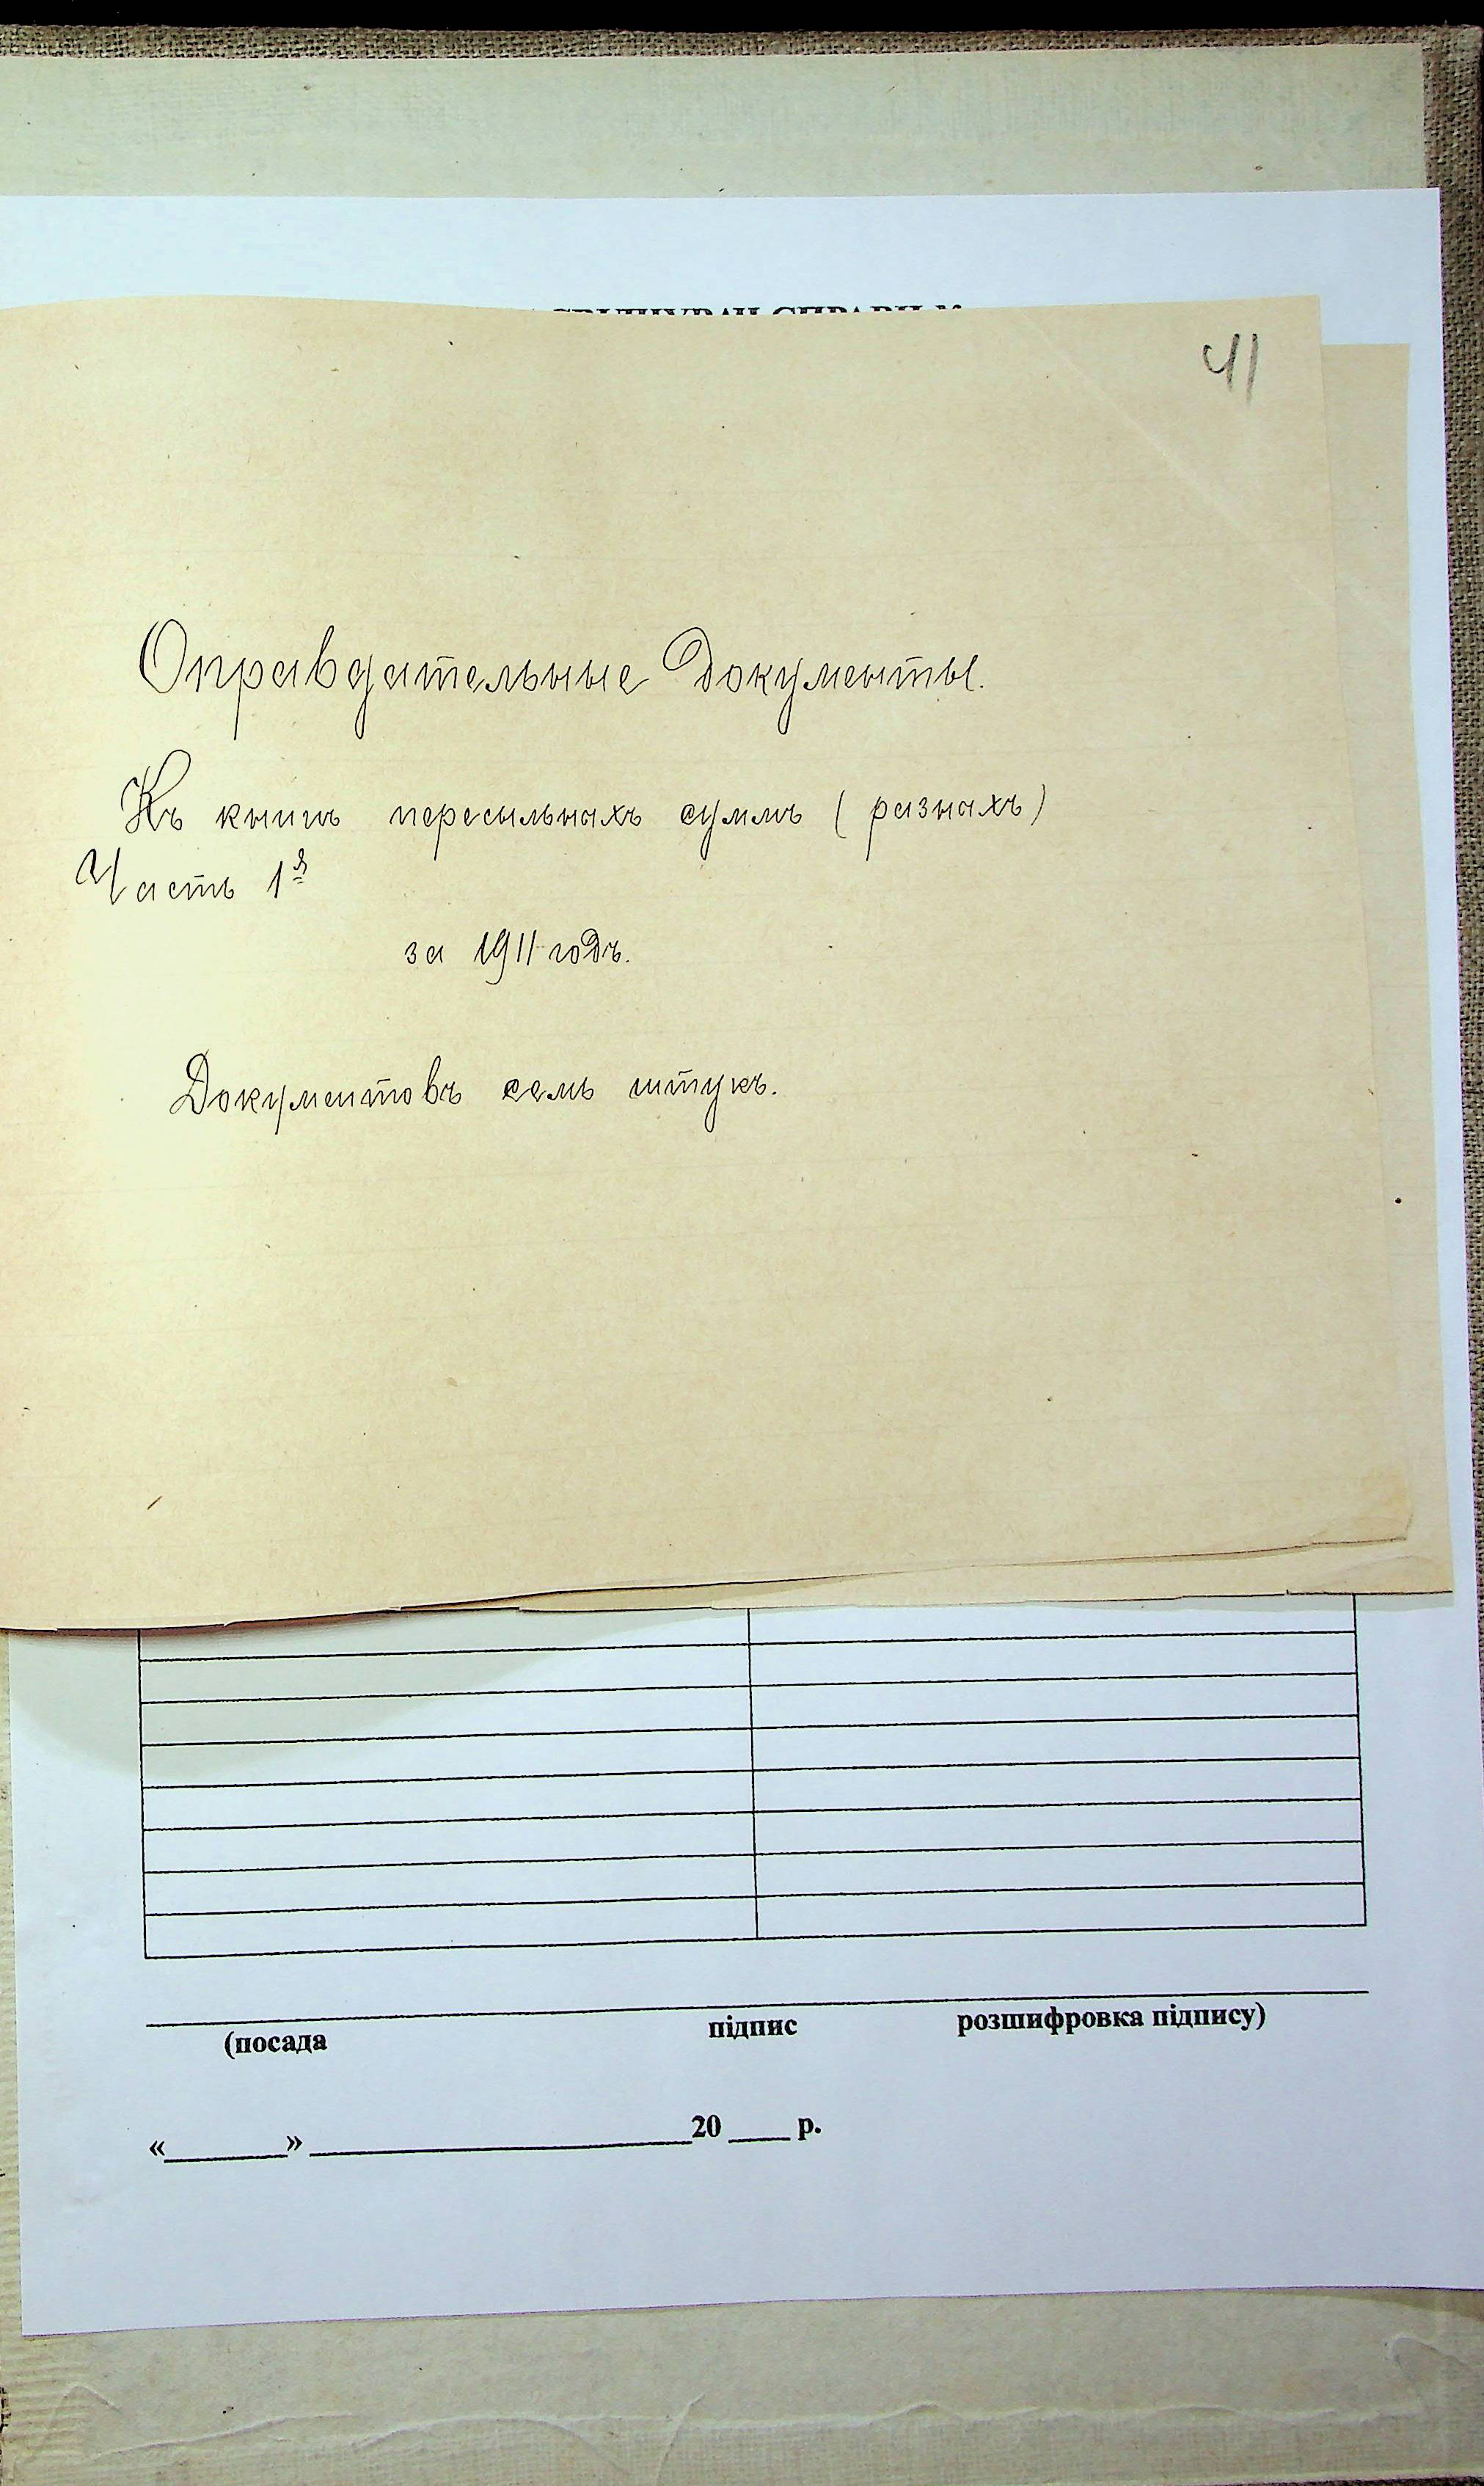 41
Оправдательные Документы.
Къ книгѣ пересыльнахъ суммъ (разнахъ)
Часть 1я
за 1911 годъ.
Документовъ семь штукъ.
(посада підпис розшифровка підпису)
«______» ______________20 ___ р.